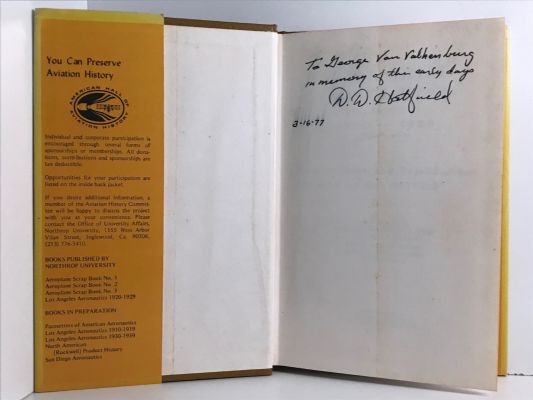 You Can Preserve
Aviation History
AMERICAN HALL OF
AVIATION HISTORY
Individual and corporate participation is
encouraged through several forms of
sponsorships or memberships. All dona-
tions, contributions and sponsorships are
tax deductible.
Opportunities for your participation are
listed on the inside back jacket.
If you desire additional information, a
member of the Aviation History Commit-
tee will be happy to discuss the project
with you at your convenience. Please
contact the Office of University Affairs,
Northrop University, 1155 West Arbor
Vitae Street, Inglewood, Ca 90306,
(213) 776-5410.
BOOKS PUBLISHED BY
NORTHROP UNIVERSITY
Aeroplane Scrap Book No. 1
Aeroplane Scrap Book No. 2
Aeroplane Scrap Book No. 3
Los Angeles Aeronautics 1920-1929
BOOKS IN PREPARATION
Pacesetters of American Aeronautics
Los Angeles Aeronautics 1910-1919
Los Angeles Aeronautics 1930-1939
North American
(Rockwell) Product History
San Diego Aeronautics
To George Van Valkenburg
in memory of the early days
D. D. Hatfield
3-16-77